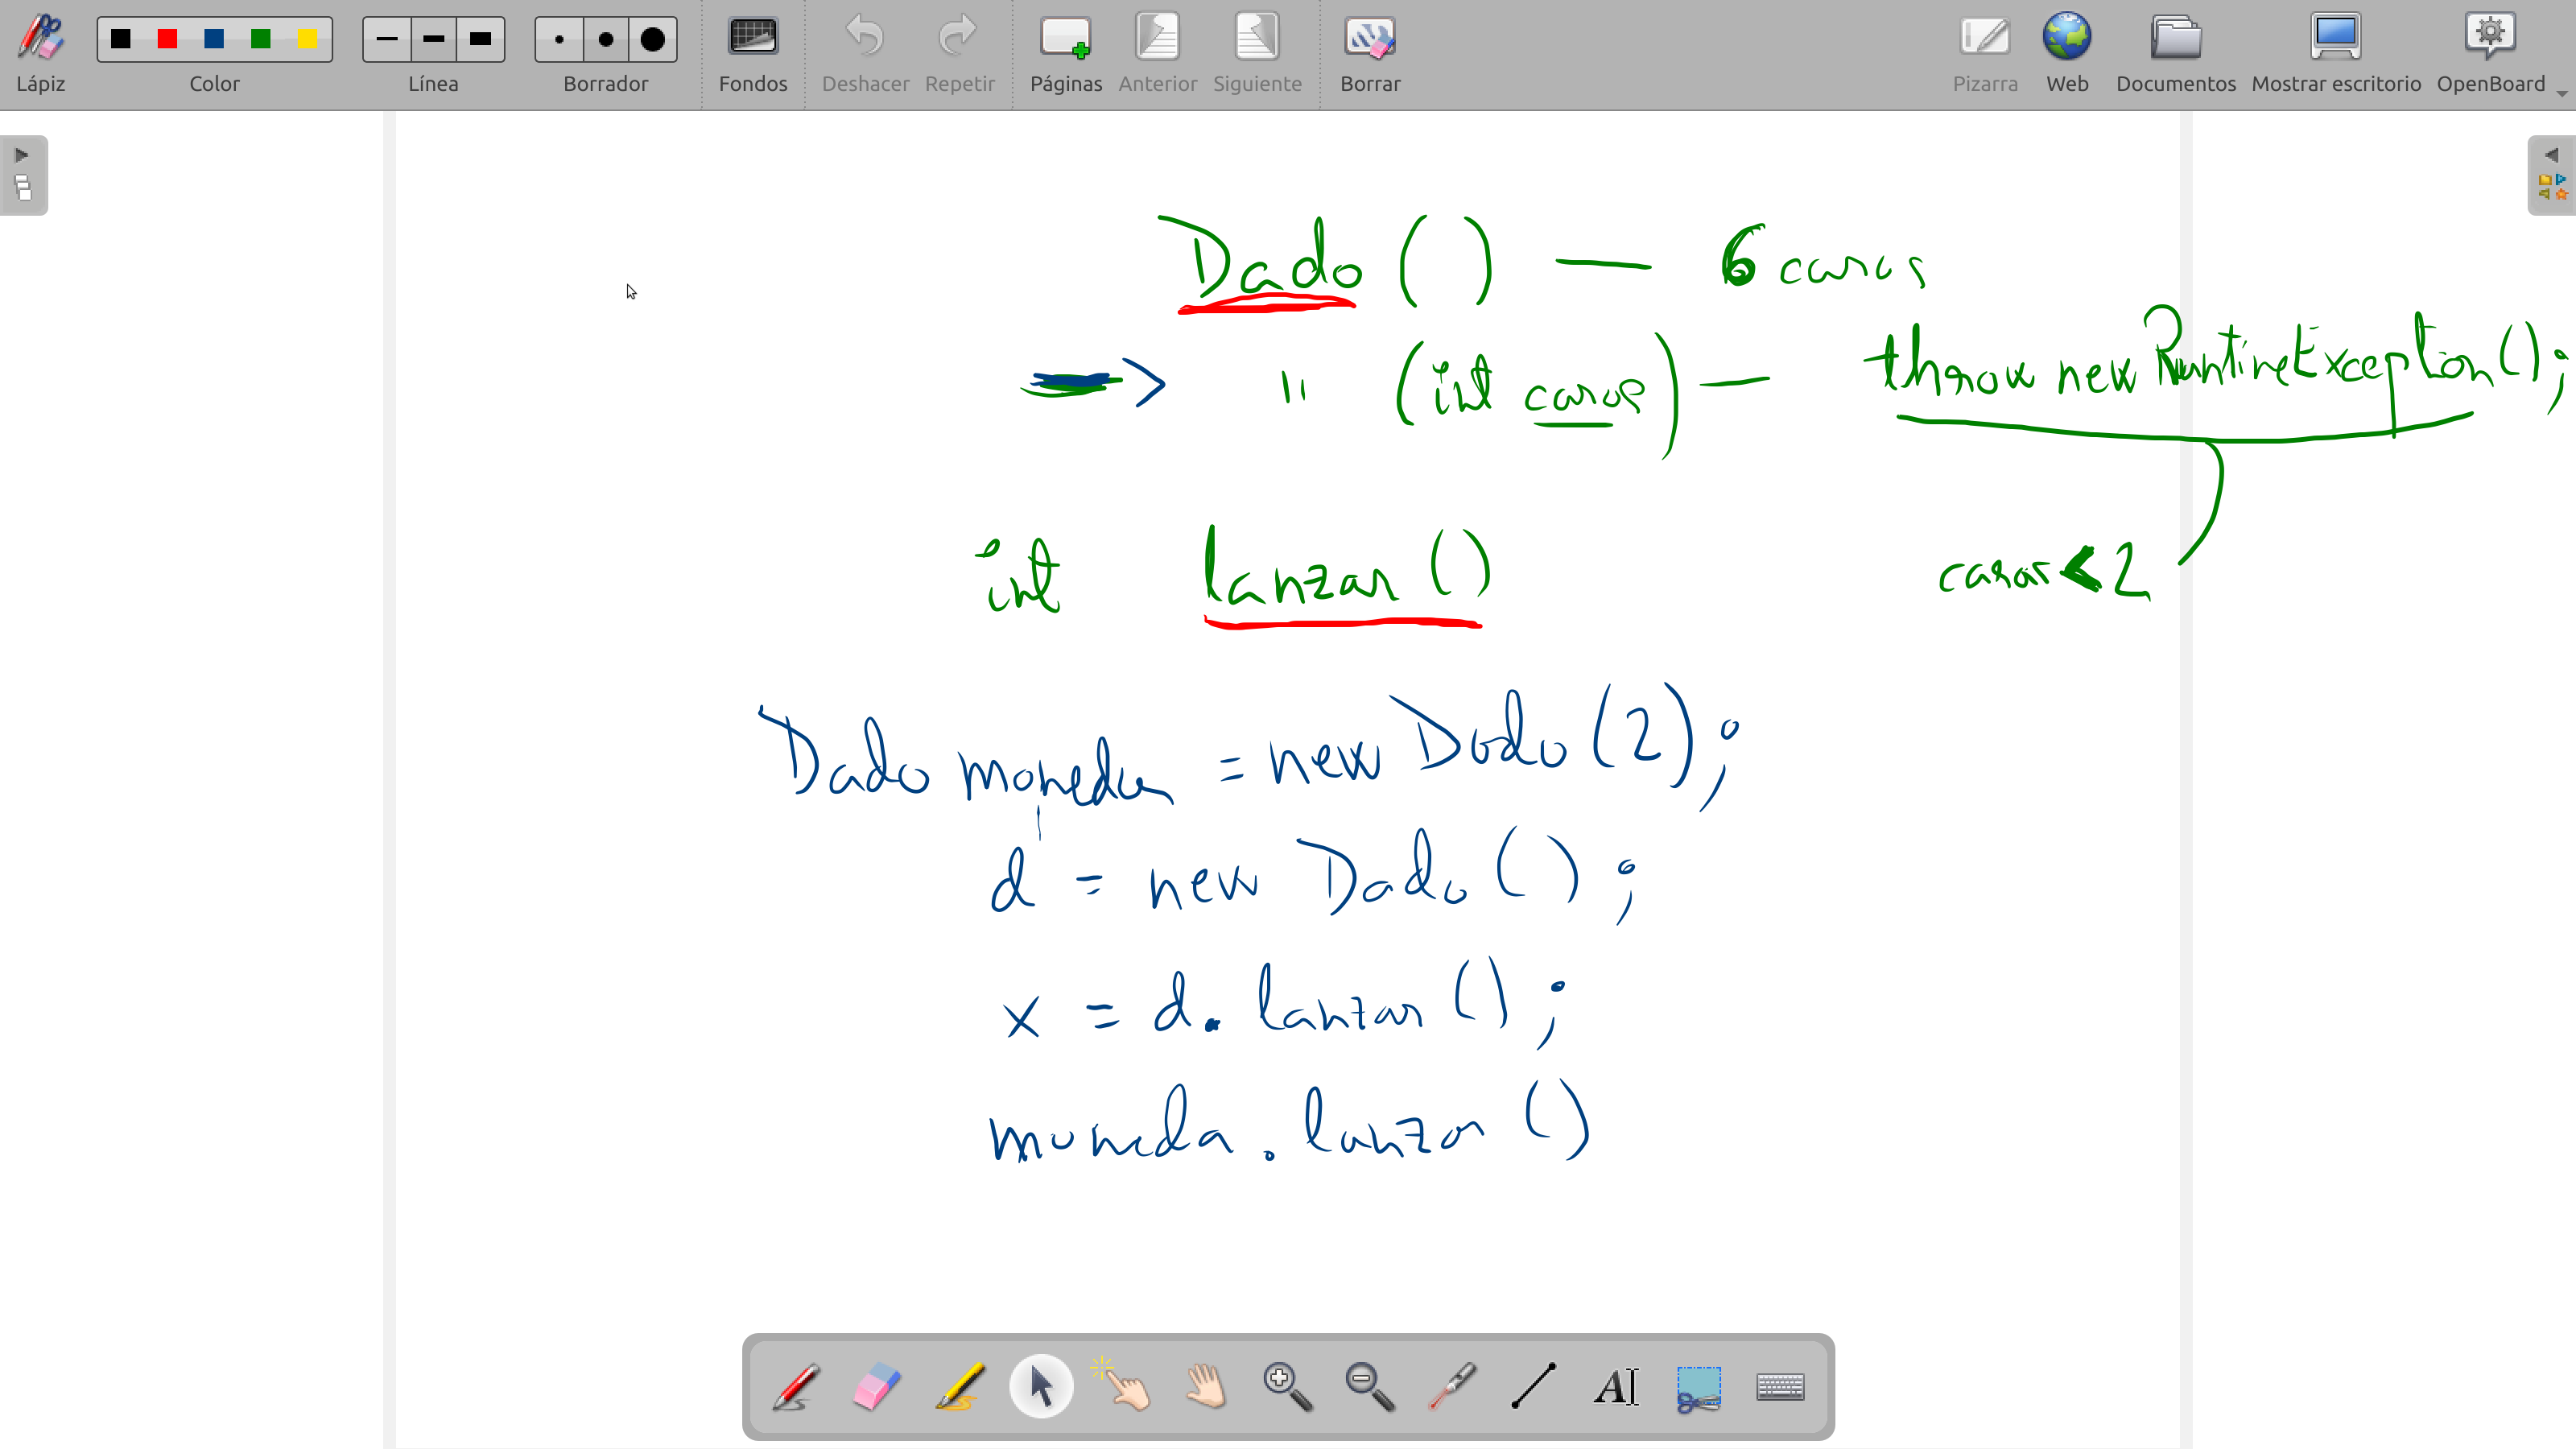 Lápiz Color Línea Borrador Fondos Deshacer Repetir Páginas Anterior Siguiente Borrar Pizarra Web Documentos Mostrar escritorio OpenBoard
Dado () — 6 caras
" (int caras) — throw new RuntimeException();
caras < 2
int lanzar ()
Dado moneda = new Dado (2);
d = new Dado ();
x = d. lanzar ();
moneda. lanzar ()